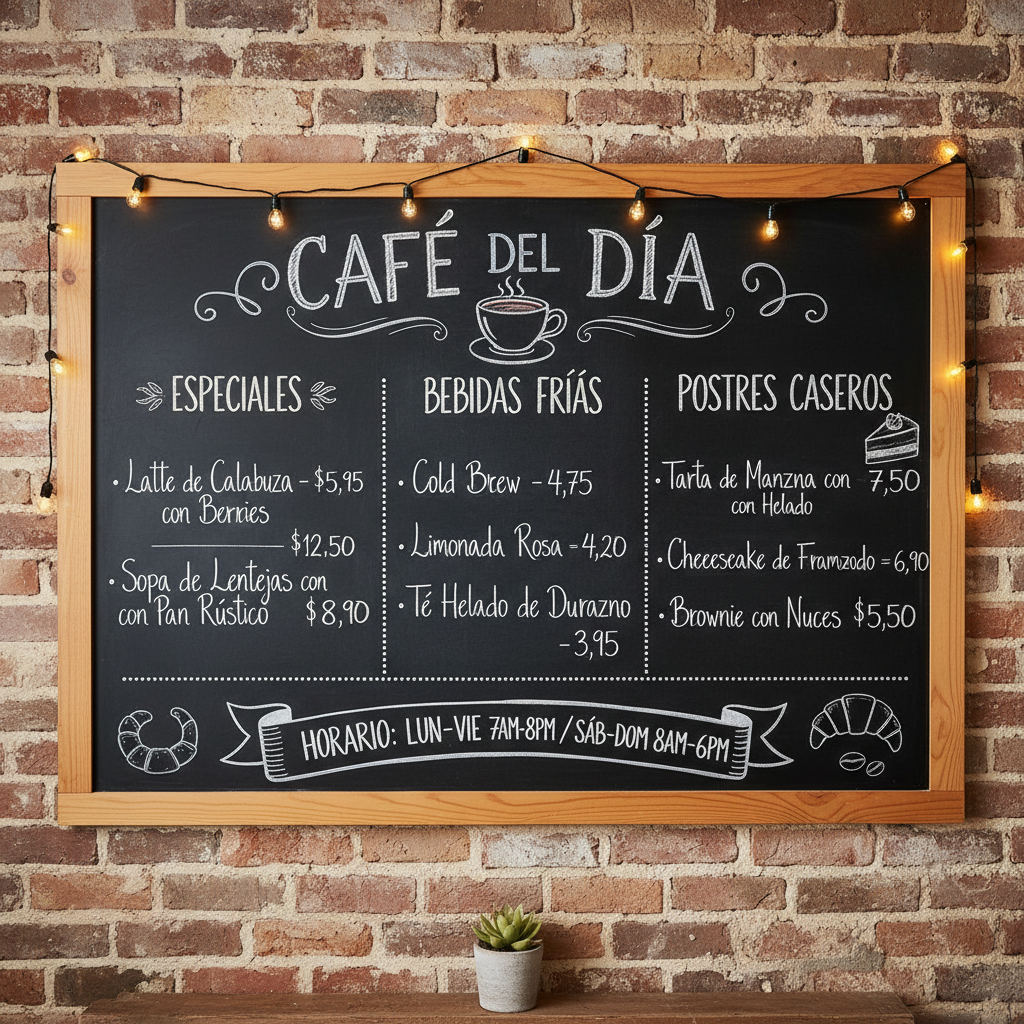 CAFÉ DEL DÍA
ESPECIALES
· Latte de Calabuza – $5,95
con Berries
$12,50
· Sopa de Lentejas con
con Pan Rústico $8,90
BEBIDAS FRÍÁS
· Cold Brew – 4,75
· Limonada Rosa = 4,20
· Té Helado de Durazno
– 3,95
POSTRES CASEROS
· Tarta de Manzna con 7,50
con Helado
· Cheeeseake de Framzodo = 6,90
· Brownie con Nuces $5,50
HORARIO: LUN-VIE 7AM-8PM / SÁB-DOM 8AM-6PM